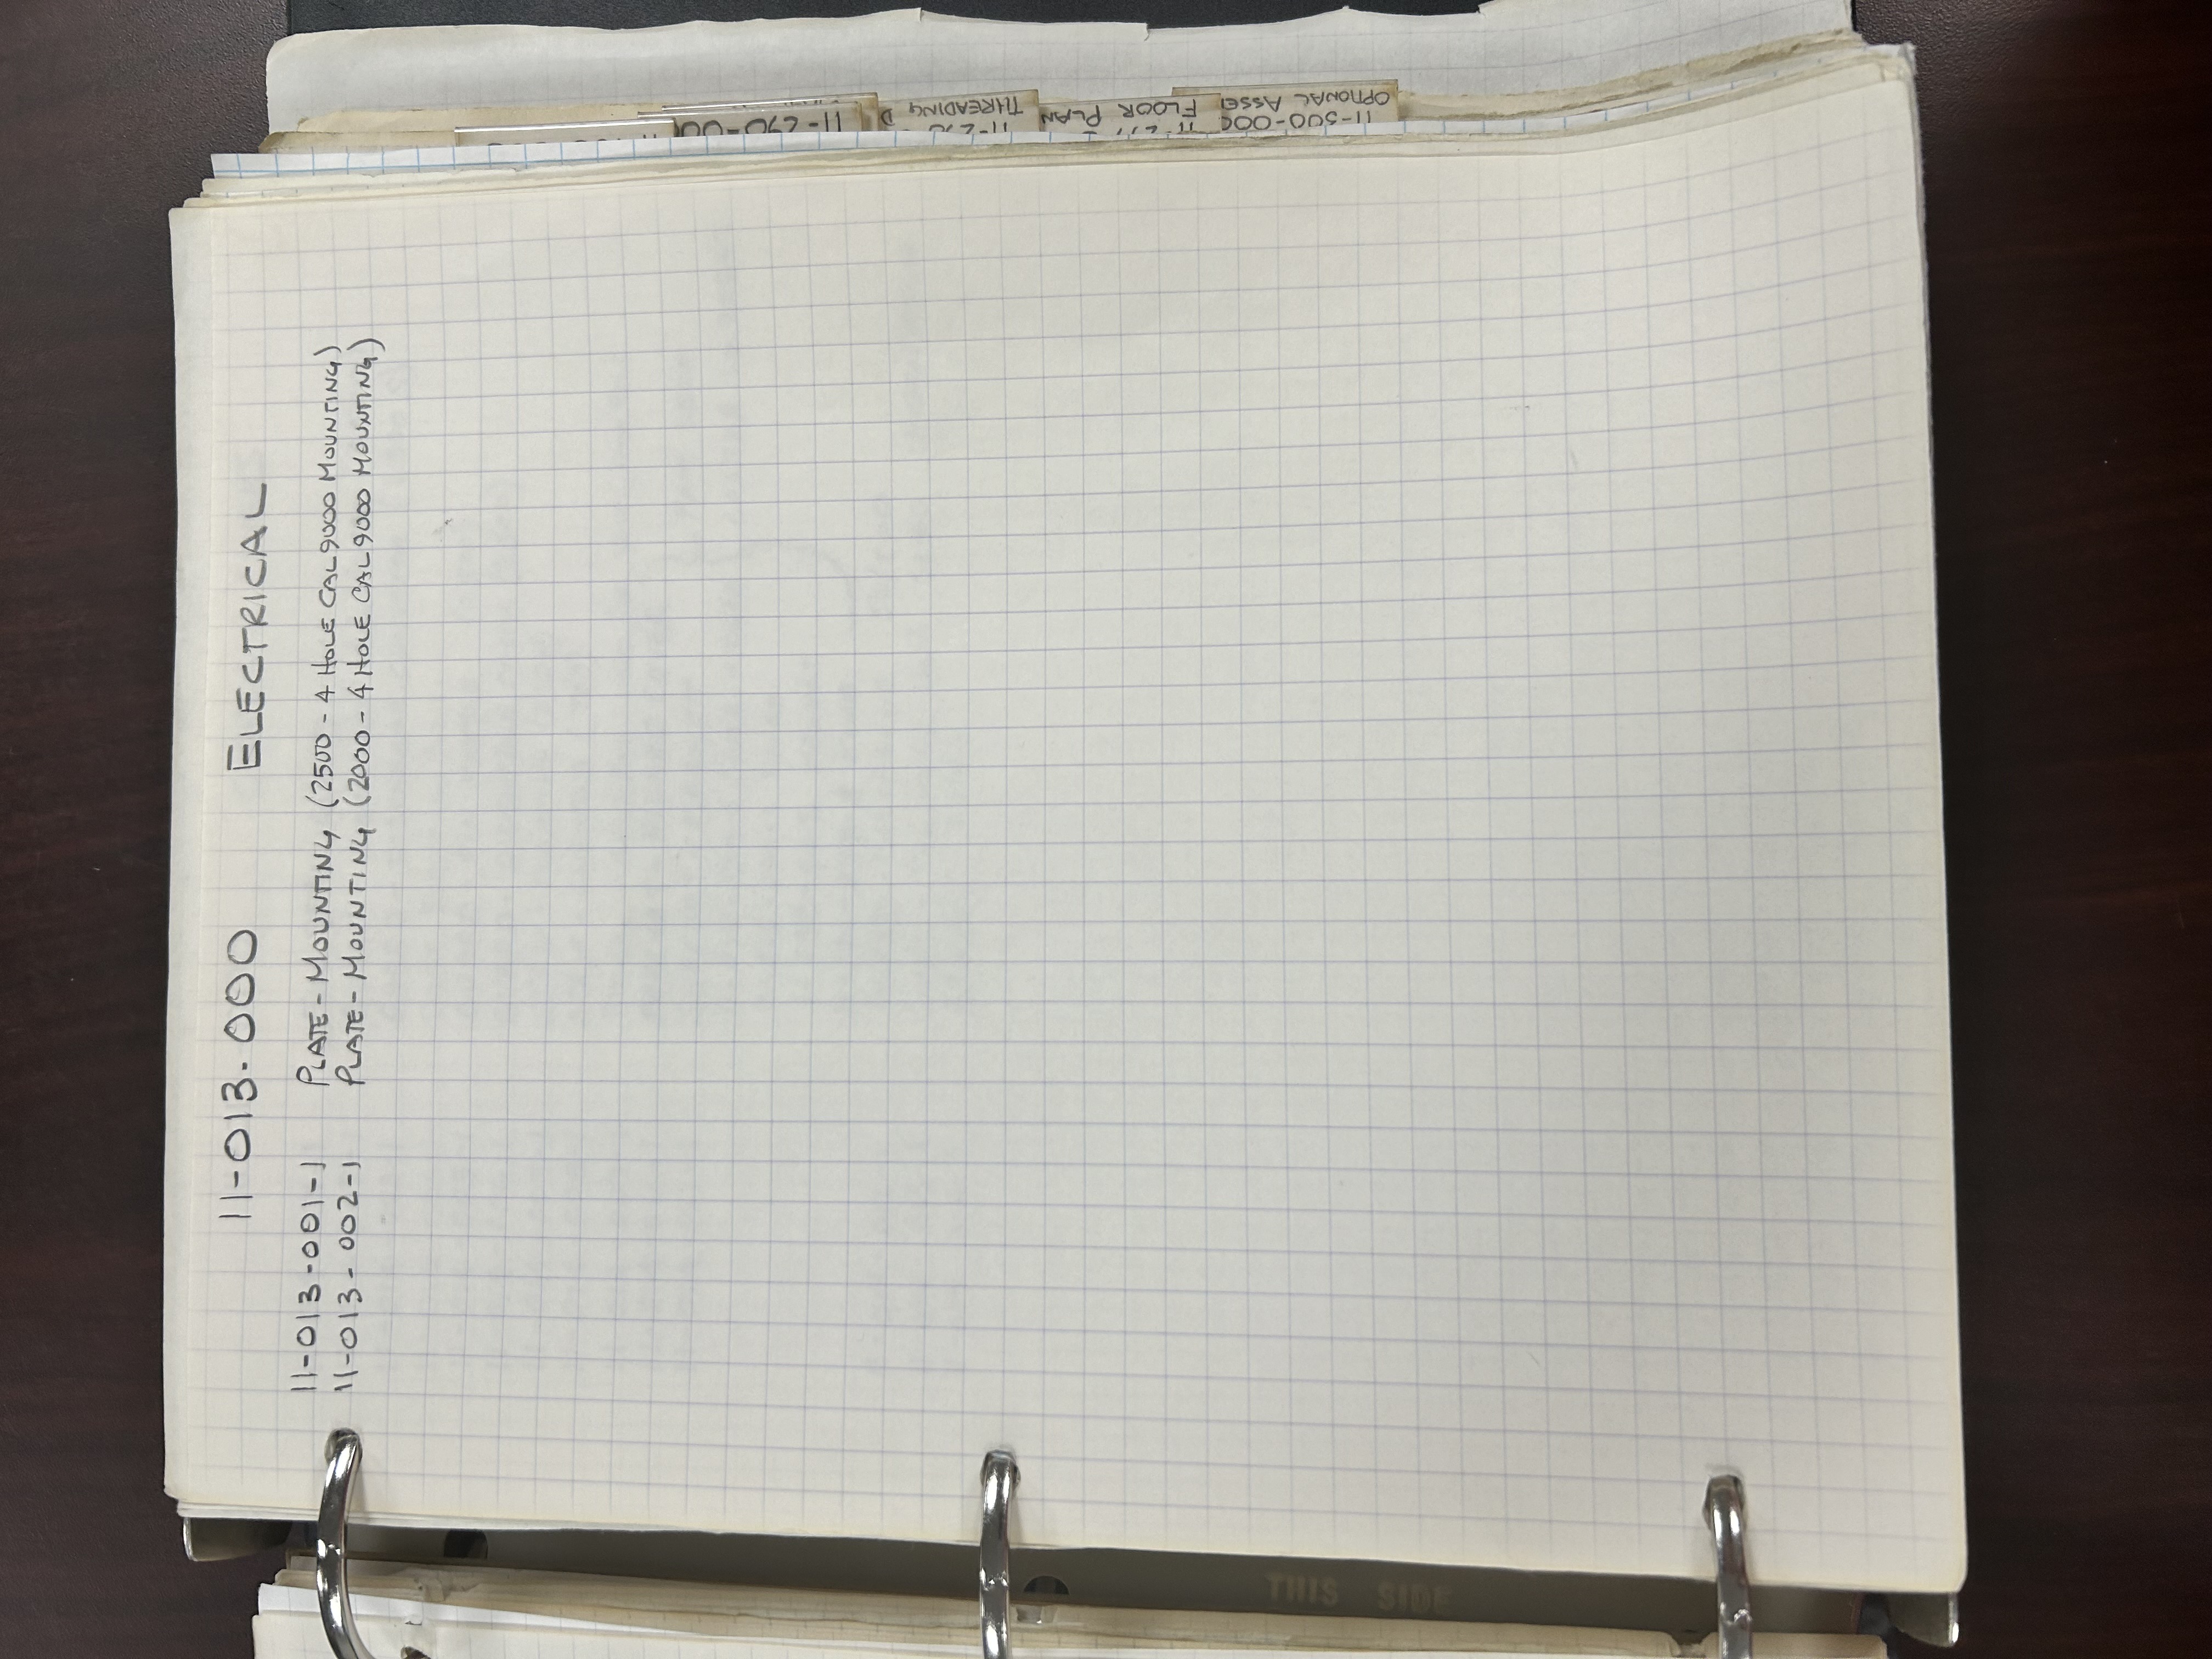 11-013-000 ELECTRICAL
11-013-001-1 PLATE-MOUNTING (2500-4 HOLE CAL9000 MOUNTING)
11-013-002-1 PLATE-MOUNTING (2000-4 HOLE CAL9000 MOUNTING)
THREADING D
FLOOR PLAN
11-300-000
OPTIONAL ASSE
THIS SIDE